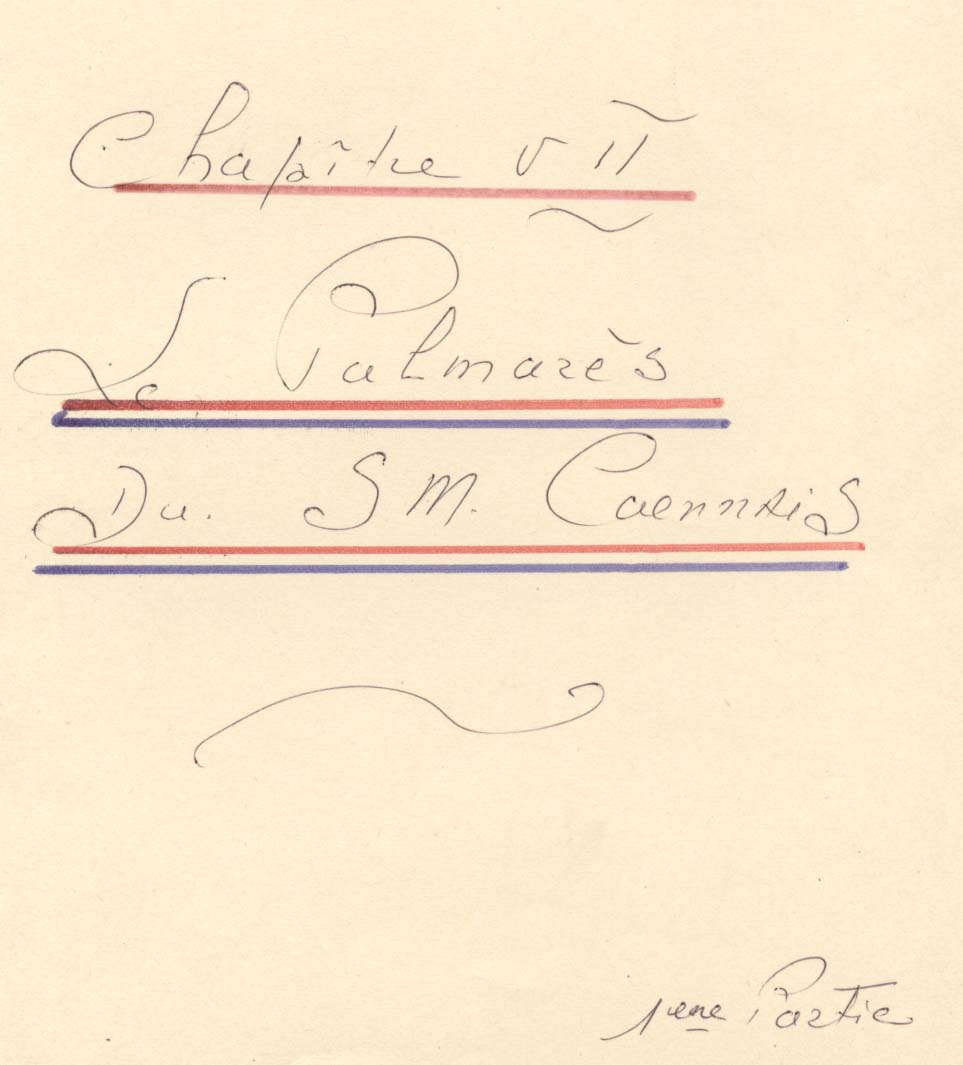 Chapître VII
Le Palmarès
Du. SM. Caennais
1ere Partie